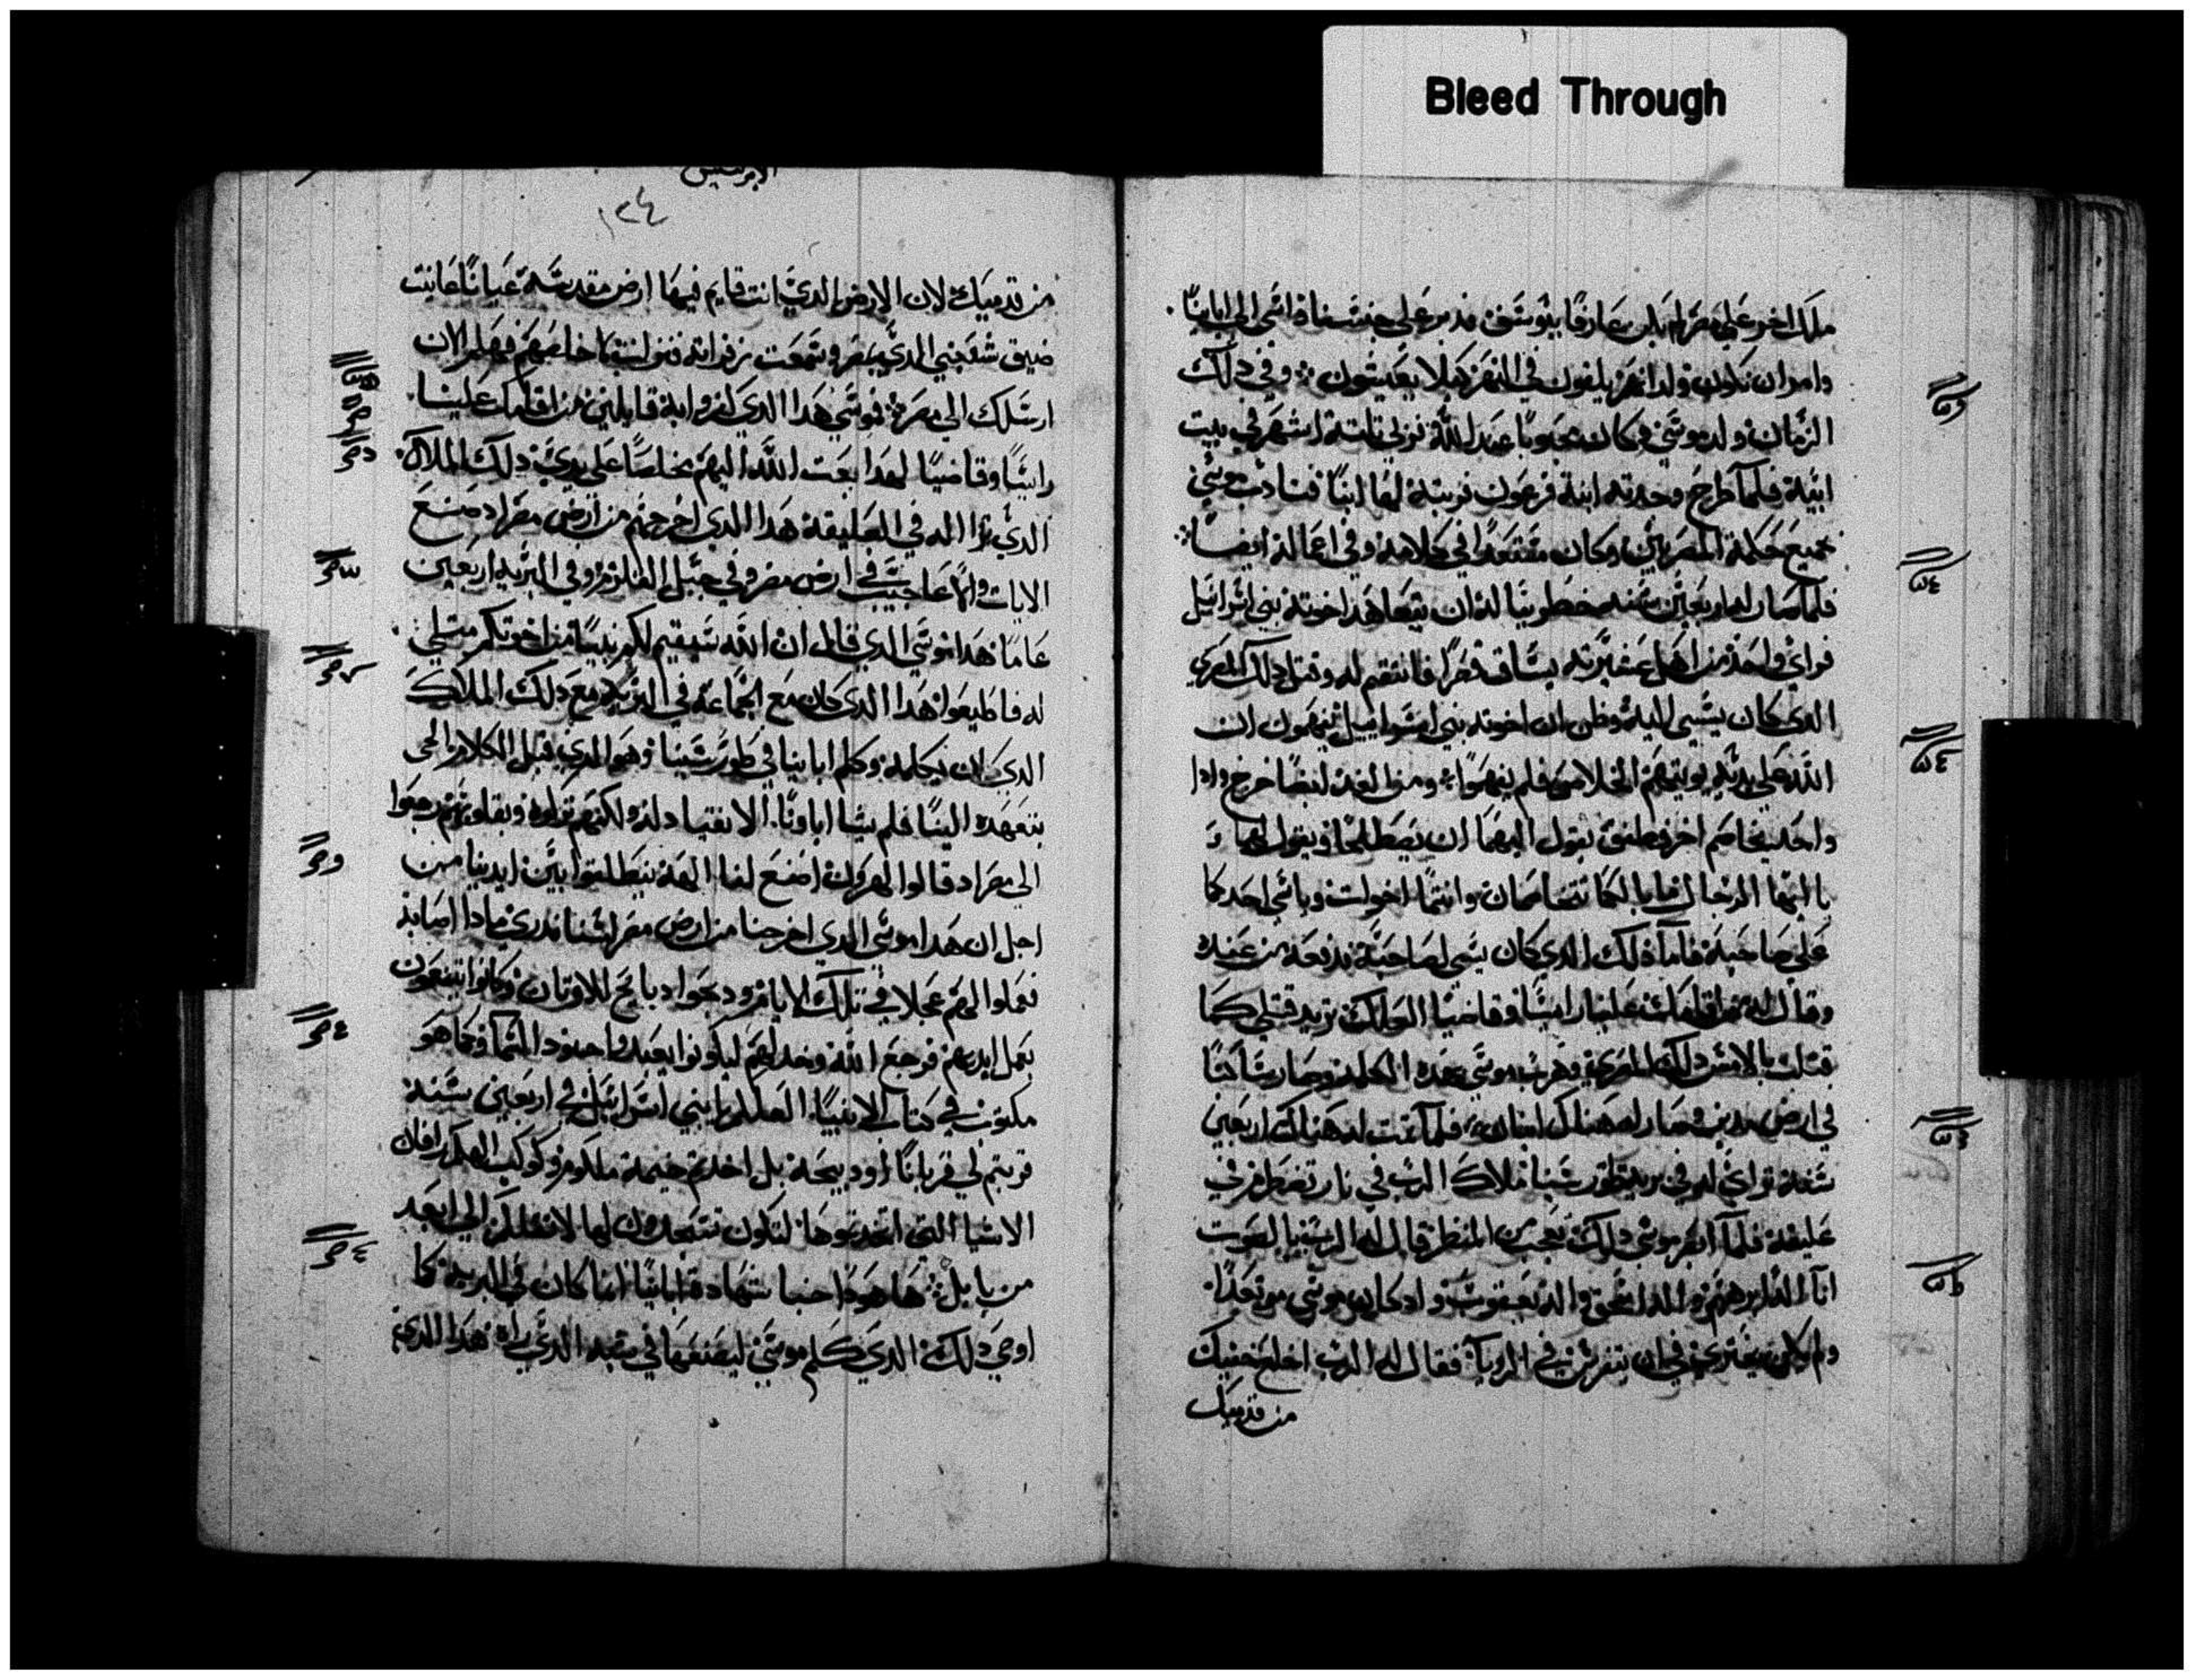 Bleed Through
ملك اخر على مصر لم يكن عارفا بيوسف فدبر على جنسنا واسى الى اباينا
وامر ان تكون ولدانهم يلقون في النهر كيلا يعيشون وفي ذلك
الزمان ولد موسى وكان محبوبا عند الله فربي تلتة اشهر في بيت
ابيه فلما طرح وجدته ابنة فرعون فربته لها ابنا فتادب موسى
بجميع حكمة المصريين وكان مستعدا في كلامه وفي اعماله ايضا
فلما صار له اربعين سنه خطر بباله ان يتعاهد اخوته بني اسرائيل
فراي واحد من اهل عشيرته يساق قهرا فانتقم له وقتل ذلك المصري
الدي كان يسي اليه وظن ان اخوته بني اسراييل يفهمون ان
الله على يديه يوتيهم الخلاص فلم يفهموا ومن الغد ايضا خرج وادا
واحد يخاصم اخر وطفق يقول اليهما ان يصطلحا ويقول لهما
يا ايها الرجال ما بالكما تتخاصمان وانتما اخوات وياسي احدكما
على صاحبه فاما ذلك الدي كان يسي لصاحبه فدفعه من عنده
وقال له من اقامك علينا راييسا وقاضيا العلك تريد قتلي كما
قتلت بالامس ذلك المصري وهرب موسى بهده الكلمة وصار ساكنا
في ارض مدين وصار له هناك ابنان فلما تمت له هناك اربعين
سنه تراي له في برية طور سينا ملاك الرب في نار تضطرم في
عليقه فلما ابصر موسى ذلك تعجب من المنظر قال له الرب بالصوت
انا اله ابرهيم واله اسحق واله يعقوب واد كان موسى مرتعدا
ولم يكن يجتري في ان يتفرس في الرويا فقال له الرب اخلع خفيك
من قدميك
الابركسيس
١٢٤
من قدميك لان الارض الدي انت قايم فيها ارض مقدسة عيانا عاينت
ضيق شعبي الدي بمصر وسمعت زفراته فنزلت لاخلصهم فهلم الان
ارسلك الى مصر فموسى هدا الدي كفروا به قايلين من اقامك علينا
راييسا وقاضيا لهدا بعت الله اليهم مخلصا على يدي ذلك الملاك
الدي ترااا له في العليقة هدا الدي اخرجهم من ارض مصر اد صنع
الايات والاعاجيب في ارض مصر وفي جبل القلزم وفي البريه اربعين
عاما هدا موسى الدي قال ان الله سيقيم لكم نبيا من اخوتكم متلي
له فاطيعوا هدا الدي كان مع الجماعة في البرية مع ذلك الملاك
الدي كان يكلمه وكلم اباينا في طور سينا وهو الدي قبل الكلام الحي
يتعهده الينا فلم يشا اباونا الانقياد له ولكنهم تركوه وبقلوبهم رجعوا
الى مصر اد قالوا لهرون اصنع لنا الهة ينطلقوا بين ايدينا من
اجل ان هدا موسى الدي اخرجنا من ارض مصر لسنا ندري مادا اصابه
فعملوا لهم عجلا في تلك الايام ودبحوا دبايح للاوتان وكانوا يتنعمون
بعمل ايديهم فرجع الله وخدلهم ليكونوا يعبدوا جنود السما كما هو
مكتوب في كتاب الانبيا العلكم يا بني اسرائيل في اربعين سنة
قربتم لي قربانا او دبيحة بل اخدتم خيمة ملكوم وكوكب الهكم رافان
الاشيا التي اتخدتموها لتكون تسجدون لها لانقلكم الى ابعد
من بابل ها هودا خبا شهادة اباينا انما كان في البرية كما
اوصى ذلك الدي كلم موسى ليصنعها في شبه الدي راه هدا الدي